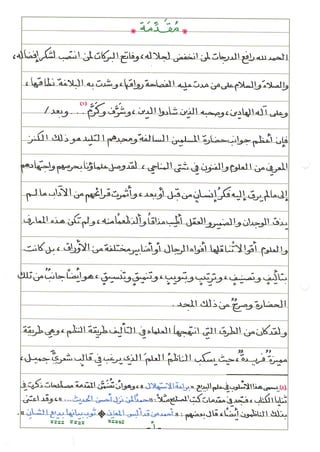 مُقَدِّمَة
الحمد لله رافع الدرجات لمن انخفض لجلاله، وفاتح البركات لمن انتصب لشكر إفضاله،
والصلاة والسلام على من مدت عليه الفصاحة رواقها، وشدت به البلاغة نطاقها،
وعلى آله الهادين، وصحبه الذين شادوا الدين، وشرَّف وكرَّم (١) ... وبعد /
فإن أعظم جوانب حضارة المسلمين السالفة ومجدهم التليد هو ذلك الكنز
المعرفي من العلوم والفنون في شتى المناحي، لقد وصل علماؤنا بحرصهم واجتهادهم
إلى ما لم يرق إليه فكر إنسان من قبل أو بعد، وأثمرت قرائحهم من الآداب ما لم
يذق الوجدان والضمير والعقل أطيب مذاقاً وألذ طعماً منه، ولم تكن هذه المعارف
والعلوم أقوالاً تناقلها أفواه الرجال أو أضابير مختلفة من الأوراق، بل كانت
بتأليف وتصنيف، وترتيب وتبويب، وتنميق وتنسيق، هو أيضاً جانب من تلك
الحضارة وصرح من ذلك المجد.
ولقد كان من الطرق التي انتهجها العلماء في التأليف طريقة النظم، وهي طريقة
مميزة فريدة، حيث يسكب الناظم العلم الذي يرغب في قالب شعري جميل،
(١) يسمى هذا الأسلوب في علم البديع «براعة الاستهلال»، وهو أن تتضمن المقدمة مصطلحات ذكرت في
ثنايا الكتاب، فتجد في مقدمات كتب المصطلح مثلاً: «حمداً لمن نزل أحسن الحديث...»، وقد اعتنى
بذلك الناظمون أيضاً، قال بعضهم: